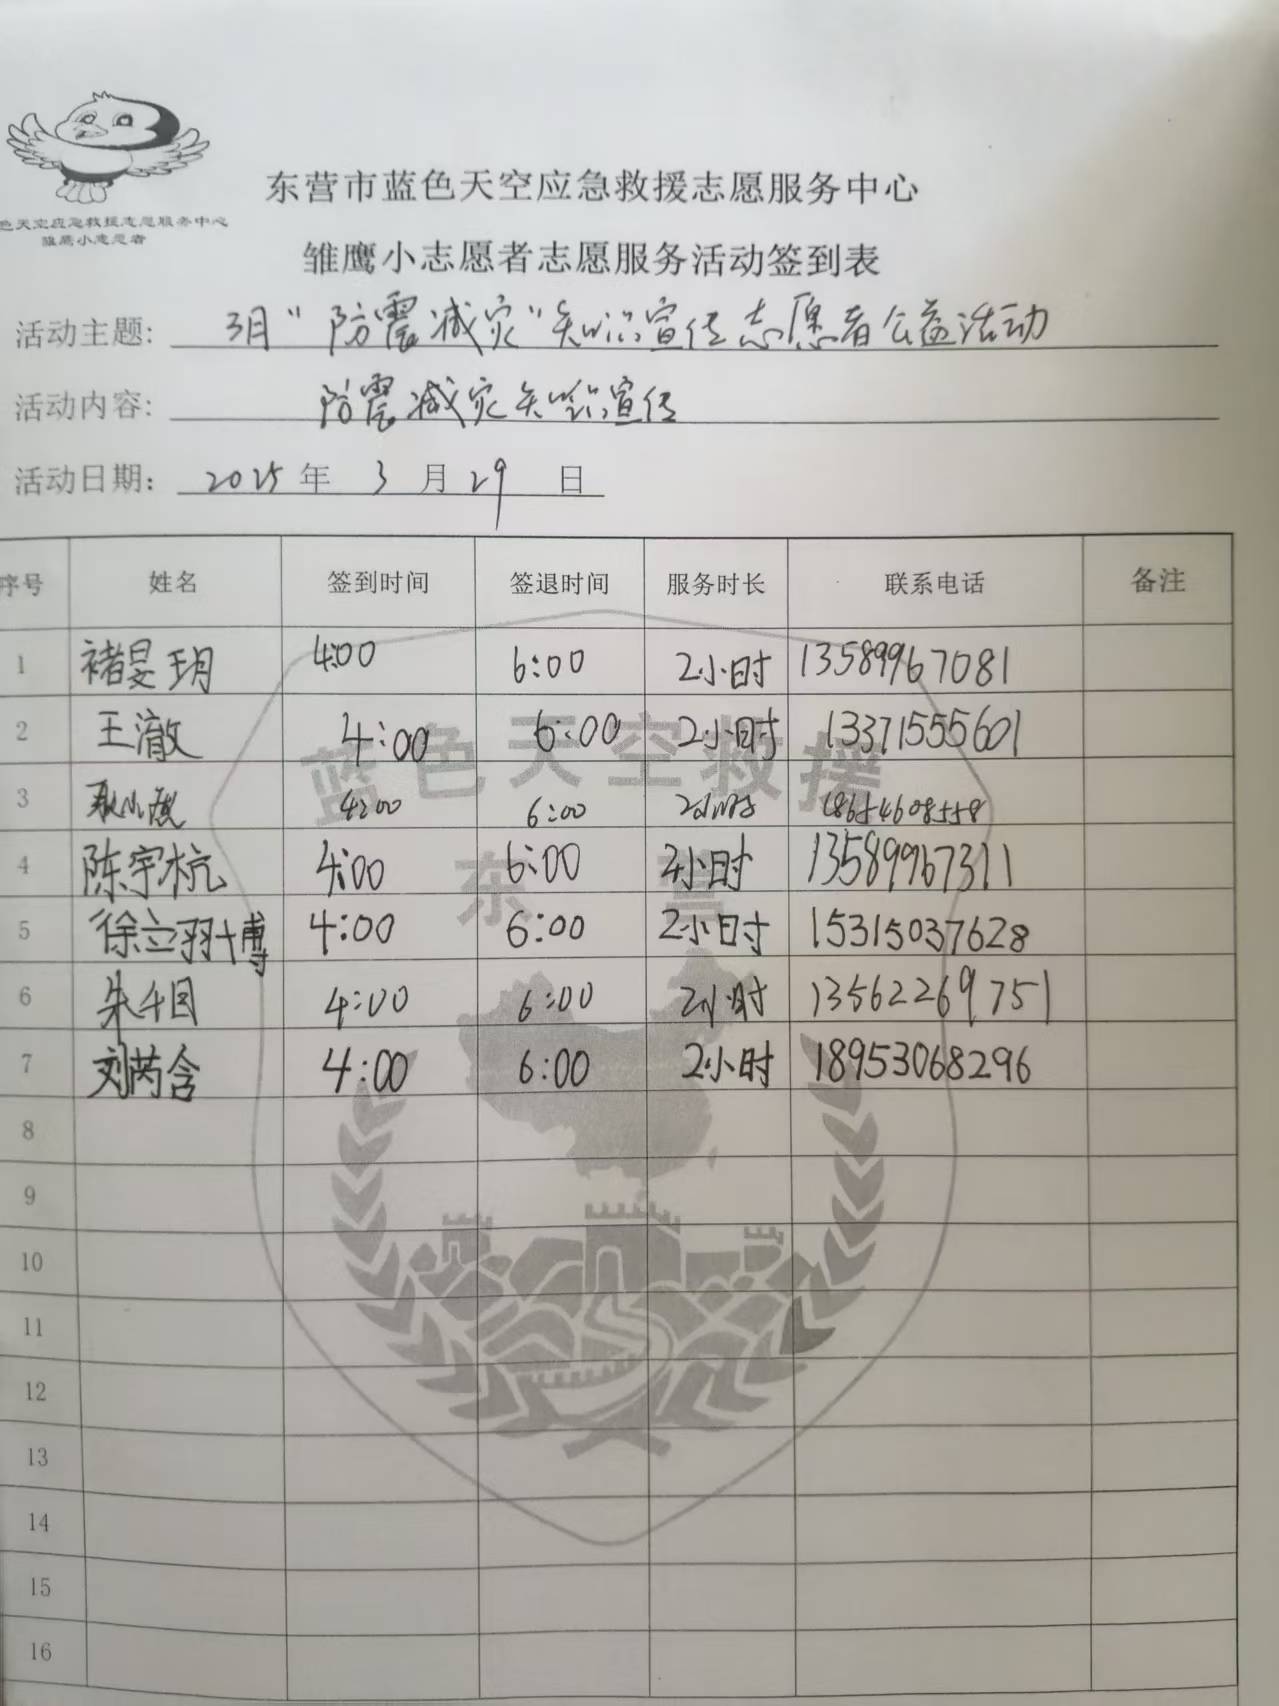 色天空应急救援志愿服务中心
雏鹰小志愿者
东营市蓝色天空应急救援志愿服务中心
雏鹰小志愿者志愿服务活动签到表
活动主题: 3月"防震减灾"知识宣传志愿者公益活动
活动内容: 防震减灾知识宣传
活动日期: 2025 年 3 月 29 日
序号 姓名 签到时间 签退时间 服务时长 联系电话 备注
1 褚旻玥 4:00 6:00 2小时 13589967081
2 王澈 4:00 6:00 2小时 13371555601
3 4:00 6:00 2小时 18654608558
4 陈宇杭 4:00 6:00 2小时 13589967311
5 徐立羽博 4:00 6:00 2小时 15315037628
6 朱千目 4:00 6:00 2小时 13562269751
7 刘芮含 4:00 6:00 2小时 18953068296
8
9
10
11
12
13
14
15
16
蓝色天空救援
东营